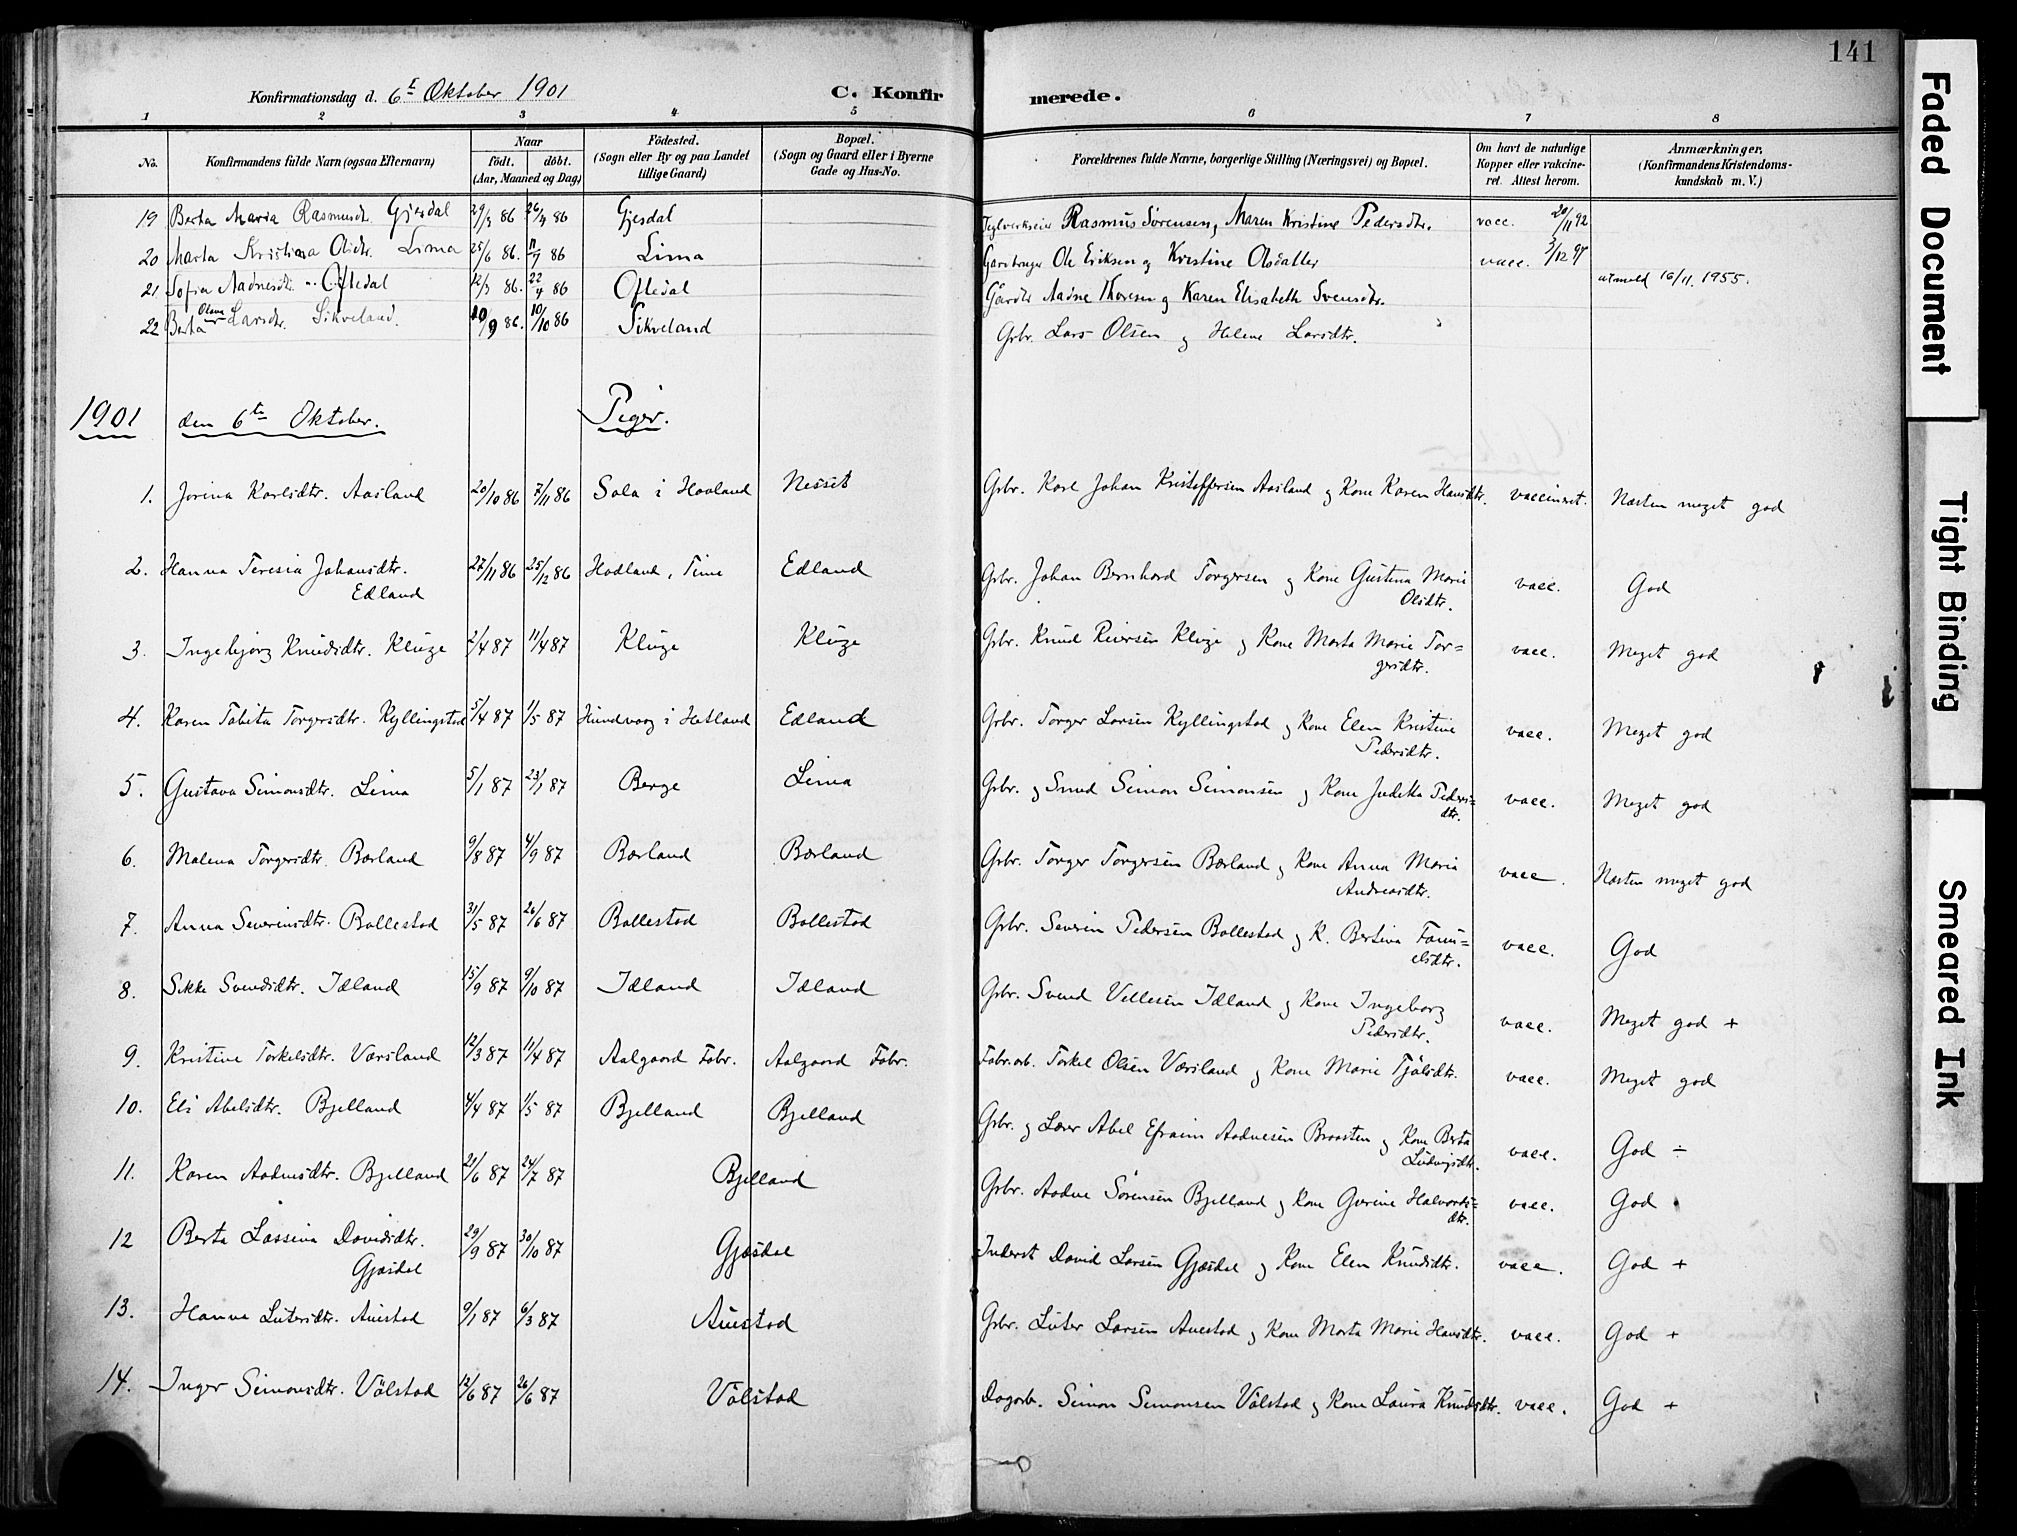 141
Konfirmationsdag d. 6te Oktober 1901 C. Konfir merede.
1 2 3 4 5 6 7 8
No. Konfirmandens fulde Navn (ogsaa Efternavn) Naar födt. döbt. (Aar, Maaned og Dag) Födested. (Sogn eller By og paa Landet tillige Gaard) Bopæl. (Sogn og Gaard eller i Byerne Gade og Hus-No. Forældrenes fulde Navne, borgerlige Stilling (Næringsvei) og Bopæl. Om havt de naturlige Kopper eller vakcineret. Attest herom. Anmærkninger, (Konfirmandens Kristendomskundskab m. V.)
19 Berta Maria Rasmusdt. Gjesdal 29/3 86 26/4 86 Gjesdal Teglverkseier Rasmus Sörensen, Maren Kristine Pedersdtr. vacc. 20/11 92
20 Marta Kristina Olsdtr. Lima 25/6 86. 11/7 86 Lima Gardbruger Ole Eriksen og Kristine Olsdatter vacc. 3/12 97
21 Sofia Aadnesdtr. Oftedal 12/3 86. 22/4 86 Oftedal Gårdbr Aadne Thoresen og Karen Elisabeth Svensdtr. utmeld 16/11. 1955.
22 Berta Olene Larsdtr. Sikveland. 10/9 86. 10/10 86 Sikveland Grbr. Lars Olsen og Helene Larsdtr.
1901 den 6te Oktober. Piger.
1. Jorina Karlsdtr. Aasland 20/10 86 7/11 86 Sola i Haaland Nesset Grbr. Karl Johan Kristoffersen Aasland og Kone Karen Hansdtr. vaccineret. Næsten meget god
2. Hanna Teresia Johansdtr. Edland 27/11 86 25/12 86 Hadland, Time Edland Grbr. Johan Bernhard Torgersen og Kone Gustena Marie Olsdtr. vacc. God
3. Ingebjorg Knudsdtr. Kluge 2/4 87 11/4 87 Kluge Kluge Grbr. Knud Reiersen Kluge og Kone Marta Marie Tor=
gersdtr. vacc. Meget god
4. Karen Tabita Torgersdtr. Kyllingstad 5/4 87 1/5 87 Hundvaag i Hetland Edland Grbr. Torger Larsen Kyllingstad og Kone Elen Kristine Pedersdtr. vacc. Meget god
5. Gustava Simonsdtr. Lima 5/1 87 23/1 87 Berge Lima Grbr. og Smed Simon Simonsen og Kone Juditha Peders=
dtr. vacc. Meget god
6. Malena Torgersdtr. Bærland 9/8 87 4/9 87 Bærland Bærland Grbr. Torger Torgersen Bærland og Kone Anna Maria Andreasdtr. vacc. Næsten meget god
7. Anna Severinsdtr. Ballestad 31/5 87 26/6 87 Ballestad Ballestad Grbr. Severin Pedersen Ballestad og K. Bertina
elsdtr. vacc. God
8. Sikke Svendsdtr. Idland 15/9 87 9/10 87 Idland Idland Grbr. Svend Vellesen Idland og Kone Ingeborg Pedersdtr. vacc. Meget god +
9. Kristine Torkelsdtr. Værsland 12/3 87 11/4 87 Aalgaard Fabr. Aalgaard Fabr. Fabr.arb. Torkel Olsen Værsland og Kone Marie Tjölsdtr. vacc. Meget god
10. Eli Abelsdtr. Bjelland 4/4 87 1/5 87 Bjelland Bjelland Grbr. og Lærer Abel Efraim Aadnesen Braasten og Kone Berta Ludvigsdtr. vacc. God ÷
11. Karen Aadnesdtr. Bjelland 21/6 87 24/7 87 Bjelland Grbr. Aadne Sörensen Bjelland og Kone Gurine Halvards=
dtr. vacc. God
12 Berta Lassina Davidsdtr. Gjæsdal 29/9 87 30/10 87 Gjæsdal Inderst David Larsen Gjæsdal og Kone Elen Knudsdtr. vacc. God +
13. Hanna Lutersdtr. Auestad 9/1 87 6/3 87 Auestad Grbr. Luter Larsen Auestad og Kone Marta Marie Hansdtr. vacc. God +
14. Inger Simonsdtr. Völstad 12/6 87 26/6 87 Völstad Dagarb. Simon Simonsen Völstad og Kone Laura Knudsdtr. vacc. God +
Faded Document
Tight Binding
Smeared Ink